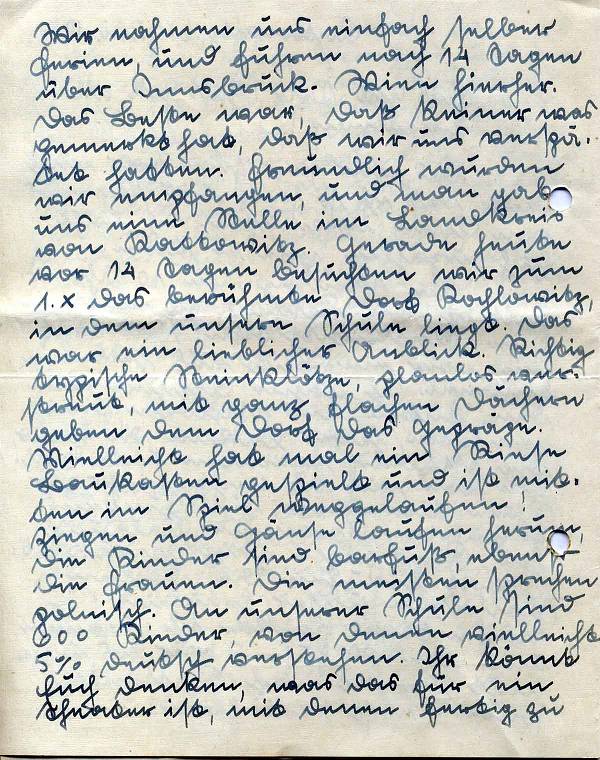 Wir nahmen uns einfach selber
Ferien, und fuhren nach 14 Tagen
über Innsbruck - Wien hierher.
Das Beste war, daß keiner was
gemerkt hat, daß wir uns verspä-
tet hatten. Freundlich wurden
wir empfangen, und man gab
uns eine Stelle im Landkreis
von Kattowitz. Gerade heute
vor 14 Tagen besuchten wir zum
1. x das berühmte Dorf Kochlowitz,
in dem unsere Schule liegt. Das
war ein lieblicher Anblick. Richtig
typische Steinklötze, planlos ver-
streut, mit ganz flachen Dächern
geben dem Dorf das Gepräge.
Vielleicht hat mal ein Riese
Baukasten gespielt und ist mit-
ten im Spiel weggelaufen!
Ziegen und Gänse laufen herum,
die Kinder sind barfuß, ebenso
die Frauen. Die meisten sprechen
polnisch. An unserer Schule sind
800 Kinder, von denen vielleicht
5% deutsch verstehen. Ihr könnt
Euch denken, was das für ein
Theater ist, mit denen fertig zu